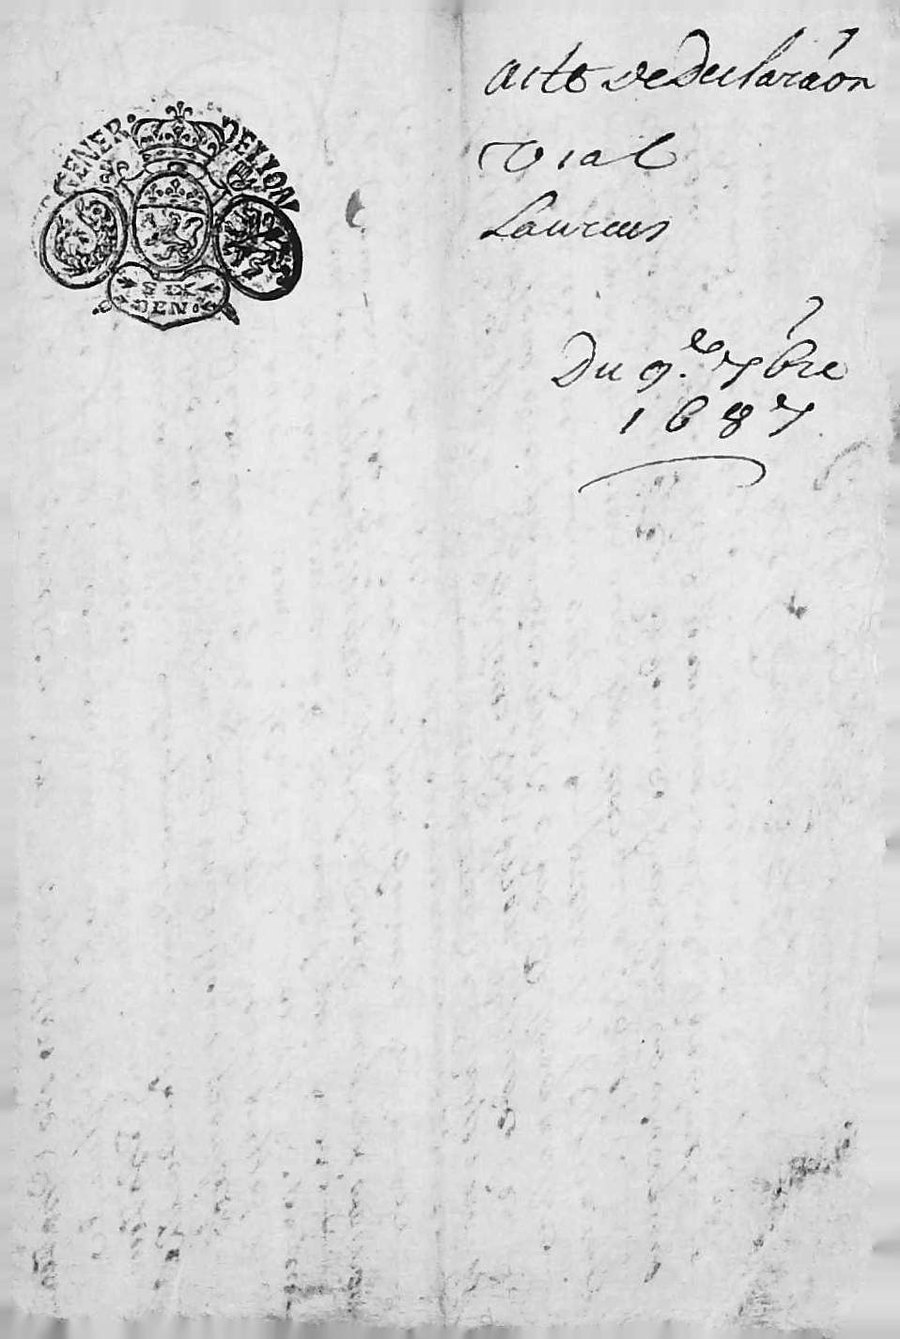 GENER. DE LYON
SIX
DEN.
acte de Declaraon
Vial
Laurens
Du 9.e 7bre
1687